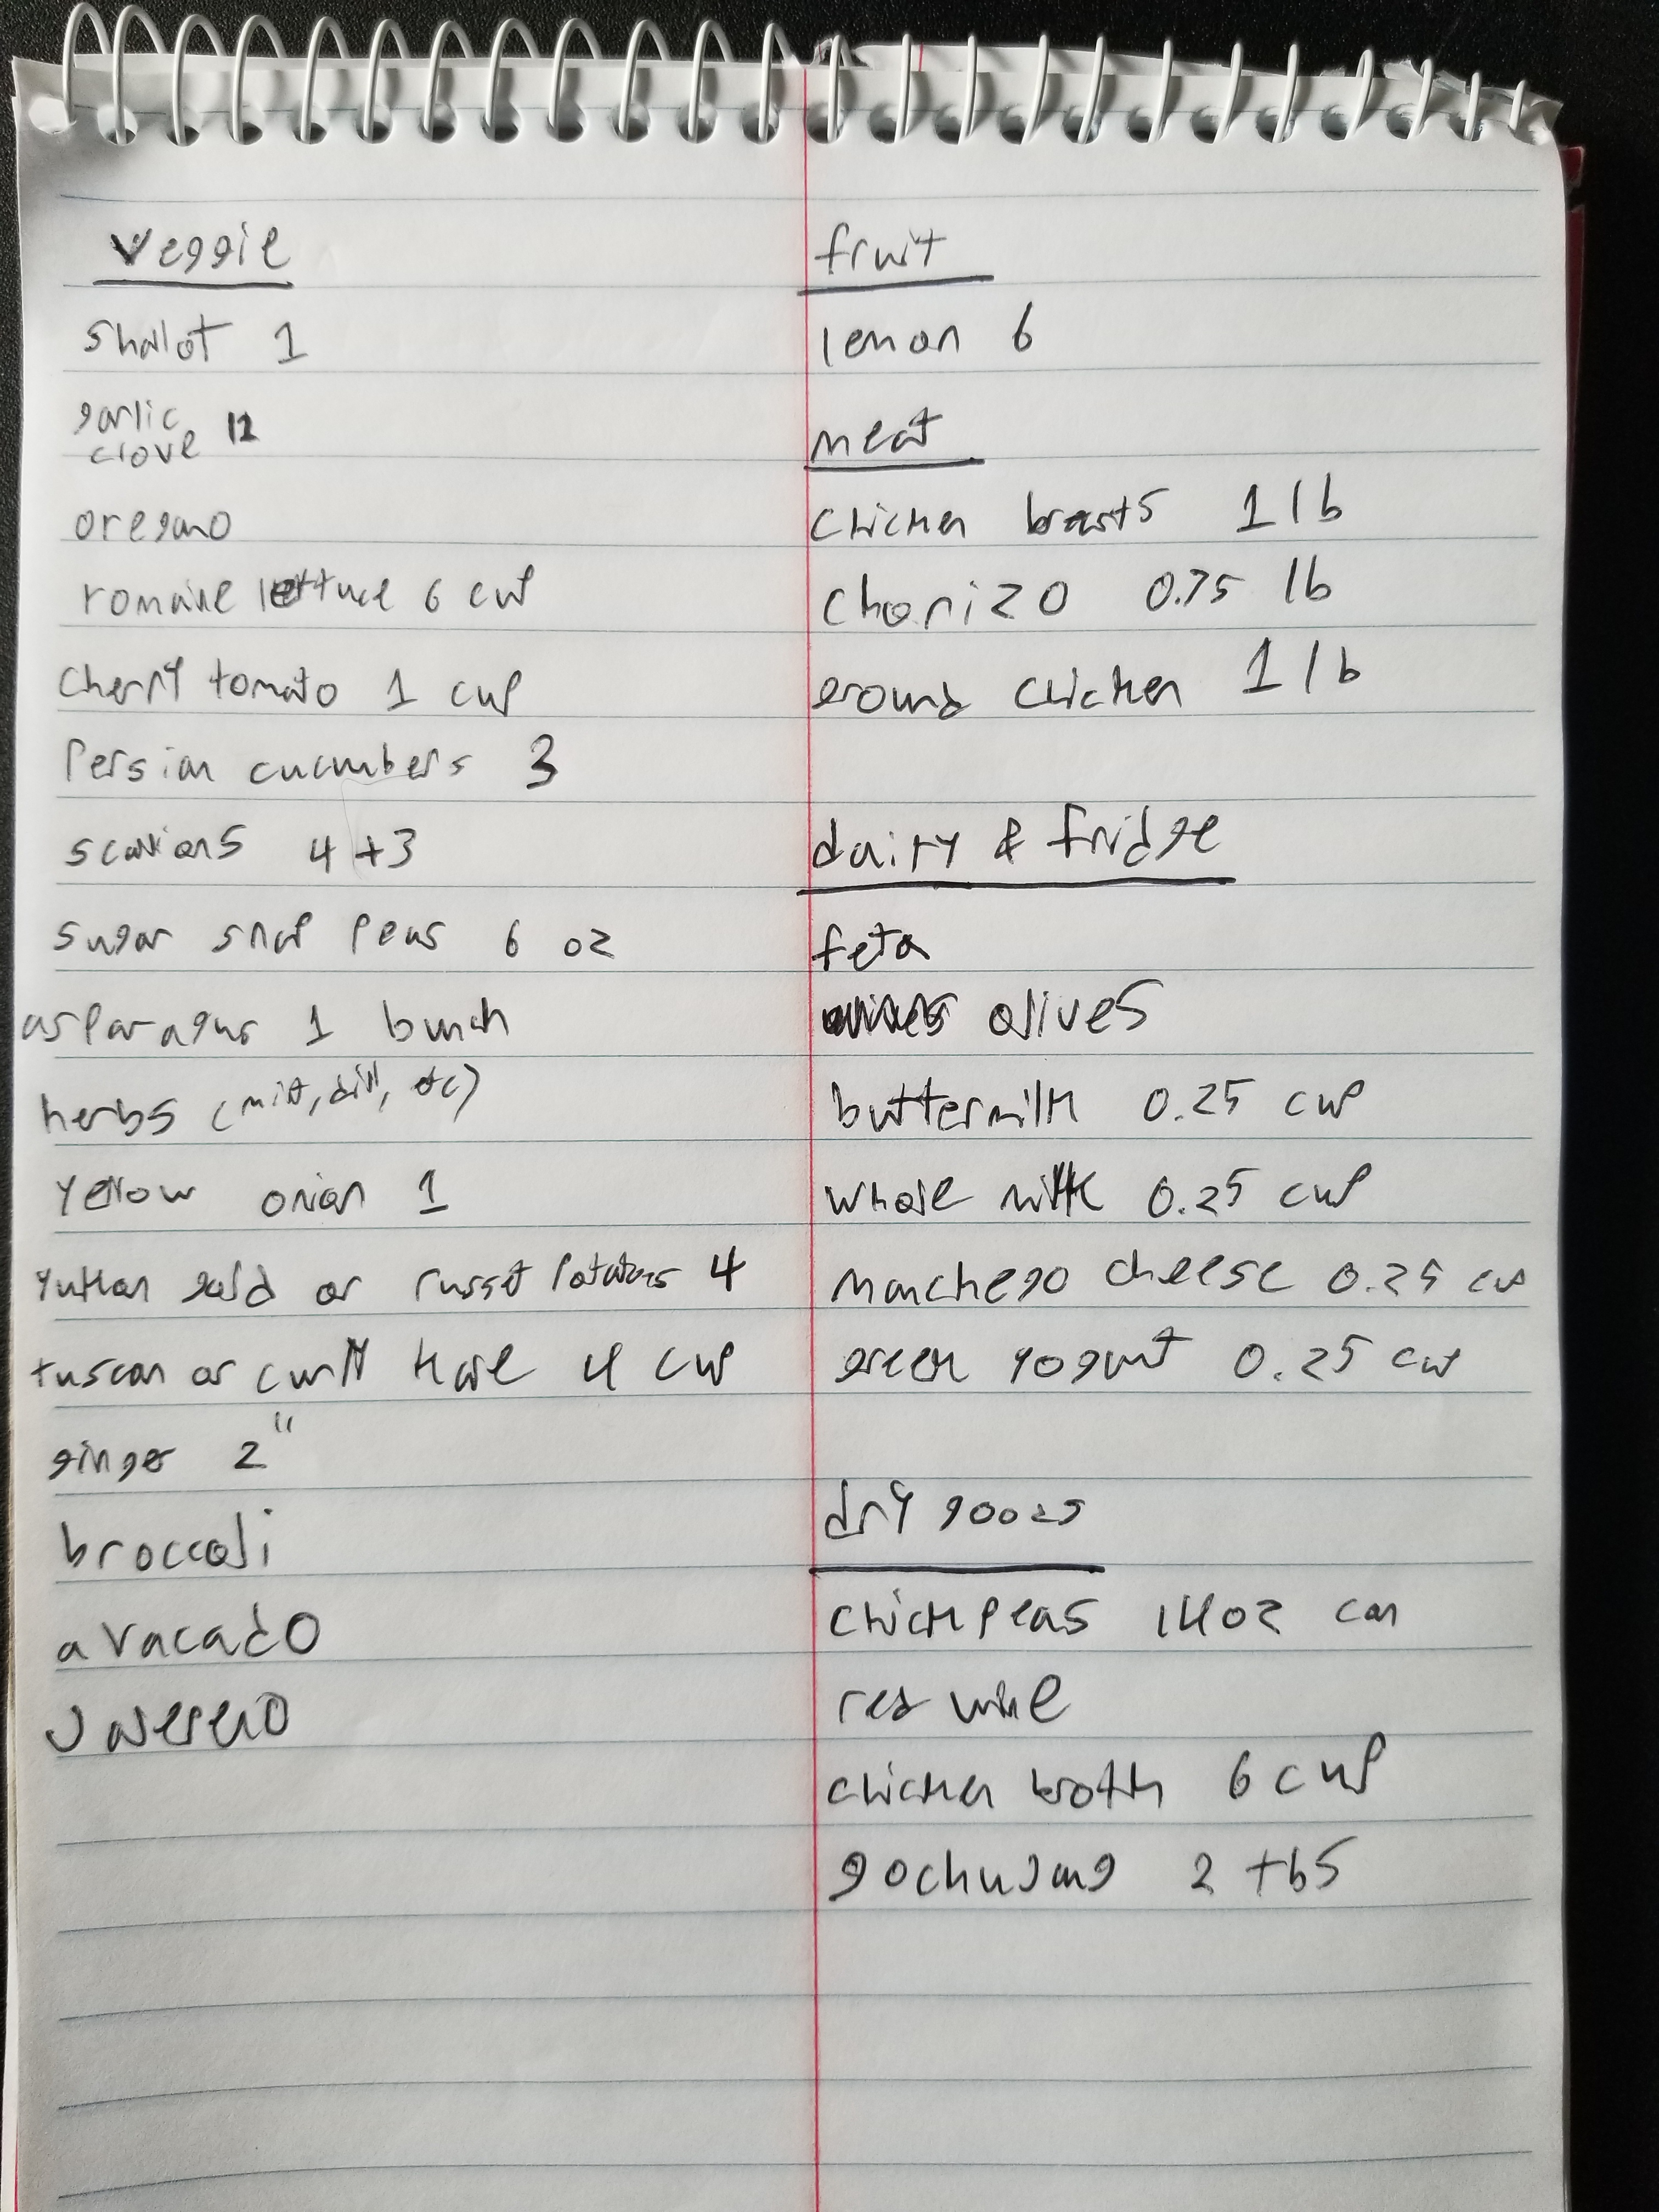 veggie
shallot 1
garlic
clove 12
oregano
romaine lettuce 6 cup
cherry tomato 1 cup
Persian cucumbers 3
scallions 4+3
sugar snap peas 6 oz
asparagus 1 bunch
herbs (mint, dill, etc)
yellow onion 1
yukon gold or russet potatoes 4
tuscan or curly kale 4 cup
ginger 2"
broccoli
avacado
Jalepeno
fruit
lemon 6
meat
chicken breasts 1 lb
chorizo 0.75 lb
ground chicken 1 lb
dairy & fridge
feta
olives
buttermilk 0.25 cup
whole milk 0.25 cup
manchego cheese 0.25 cup
greek yogurt 0.25 cup
dry goods
chickpeas 14oz can
red wine
chicken broth 6 cup
gochujang 2 tbs